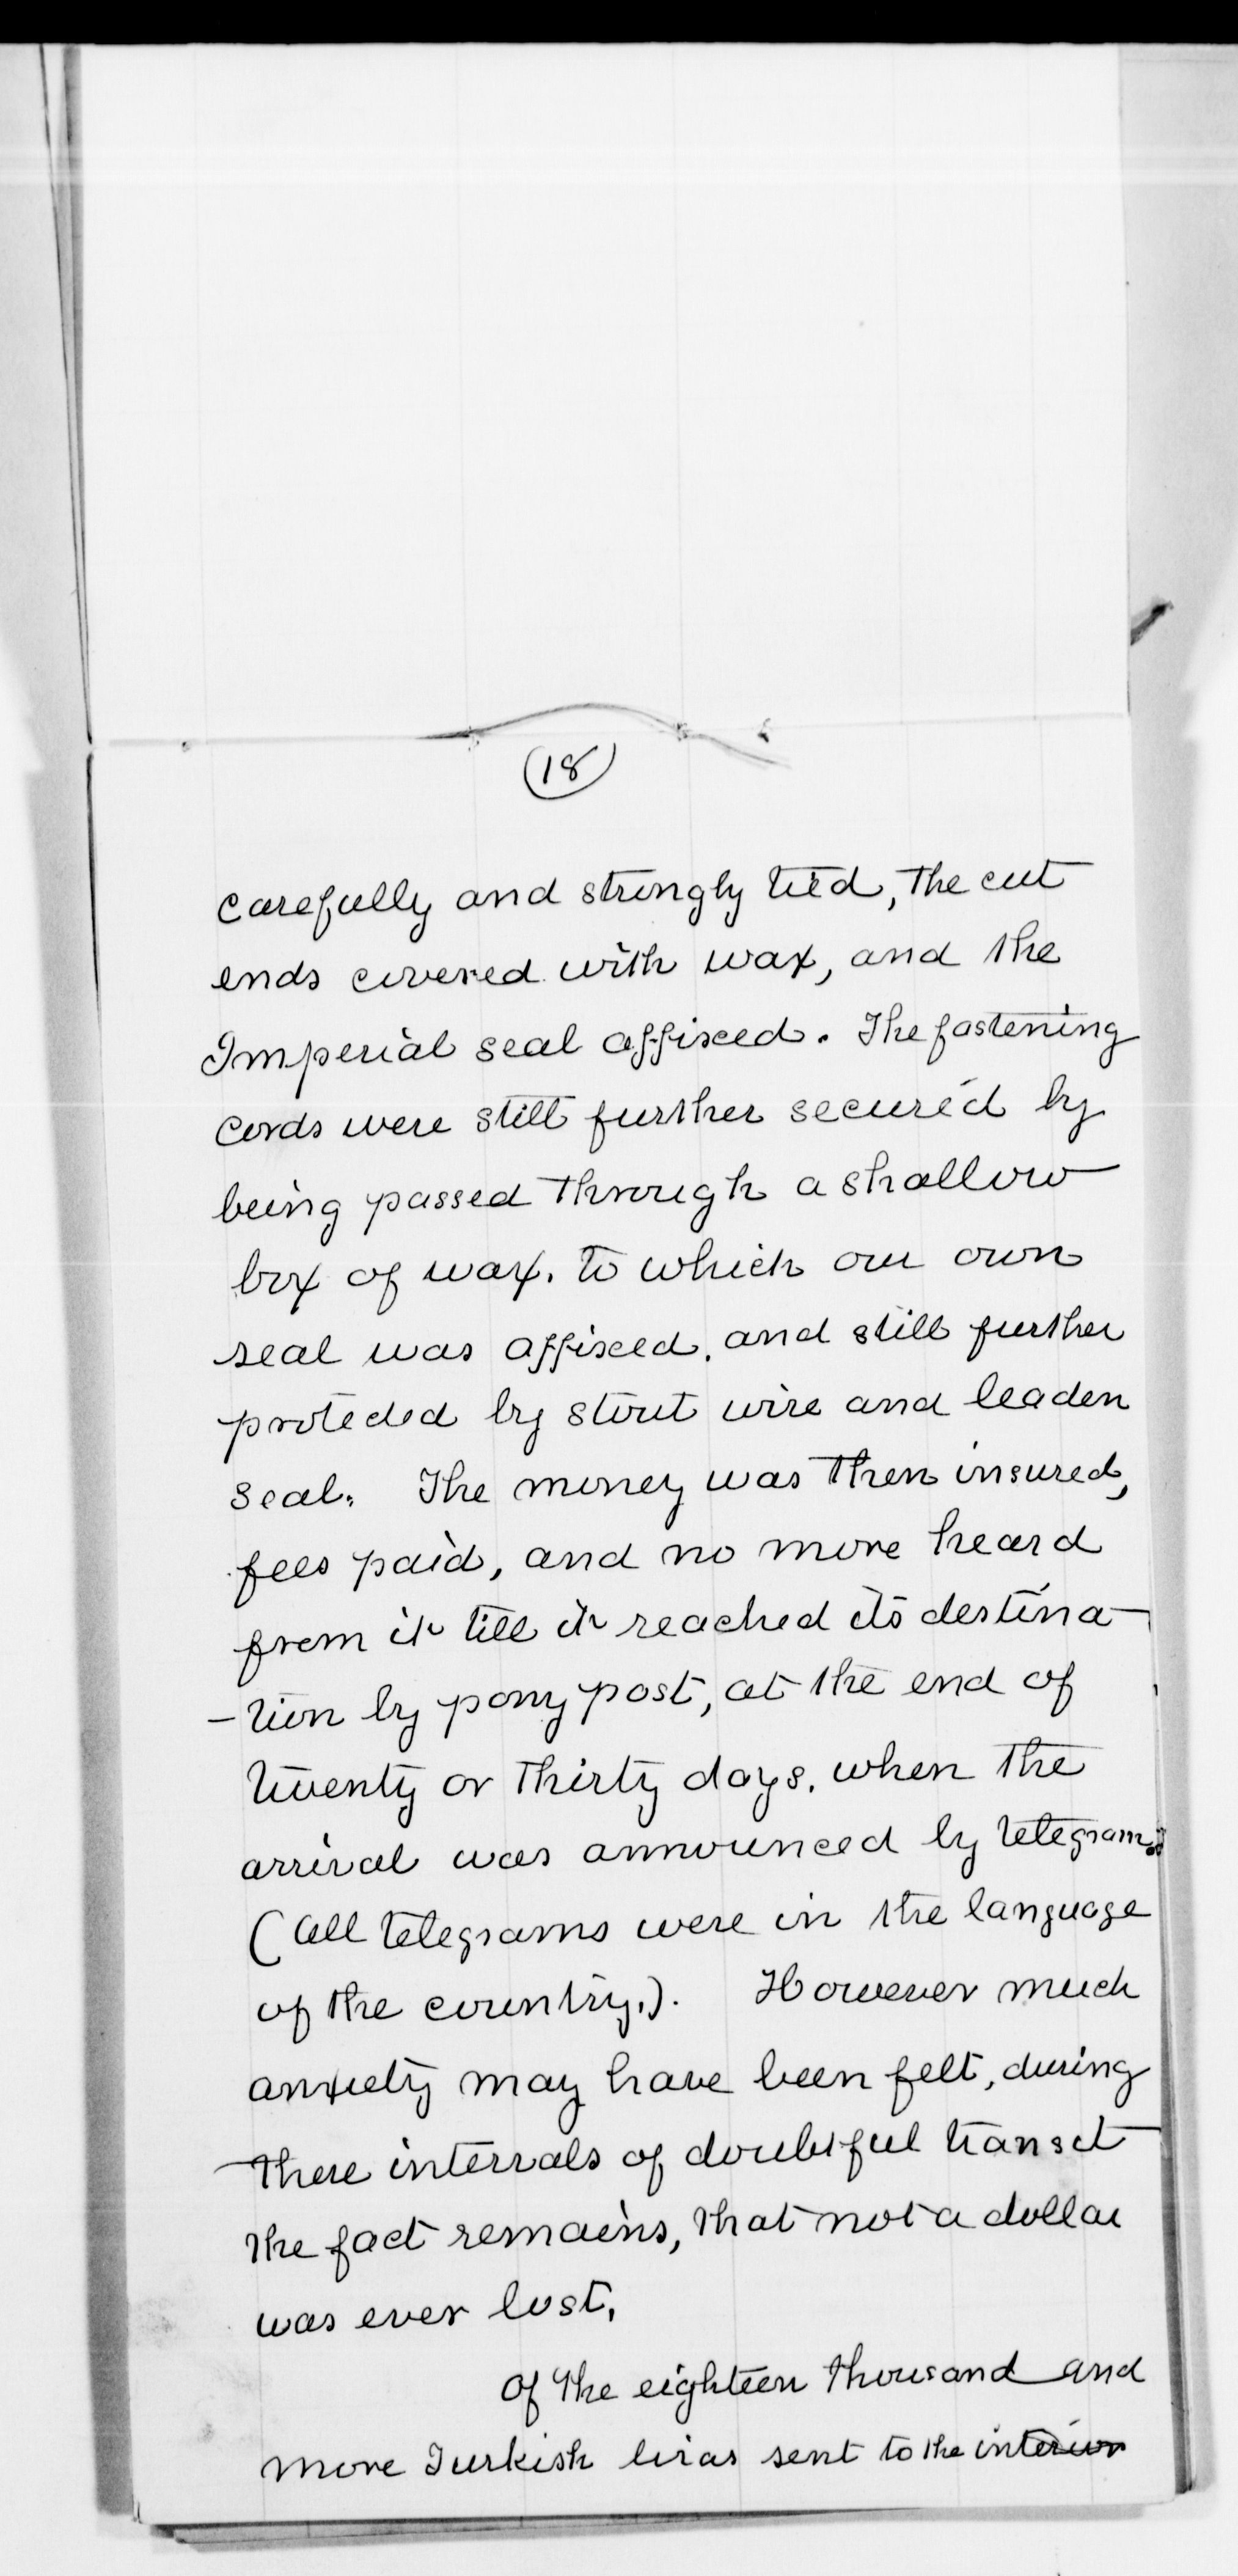 (18)
carefully and strongly tied, the cut
ends covered with wax, and the
Imperial seal affixed. The fastening
cords were still further secured by
being passed through a shallow
box of wax. to which our own
seal was affixed. and still further
protected by stout wire and leaden
seal. The money was then insured,
fees paid, and no more heard
from it till it reached its destina-
-tion by pony post, at the end of
twenty or thirty days. when the
arrival was announced by telegram.
(All telegrams were in the language
of the country.). However much
anxiety may have been felt, during
these intervals of doubtful transit
the fact remains, that not a dollar
was ever lost.
Of the eighteen thousand and
more Turkish liras sent to the interior